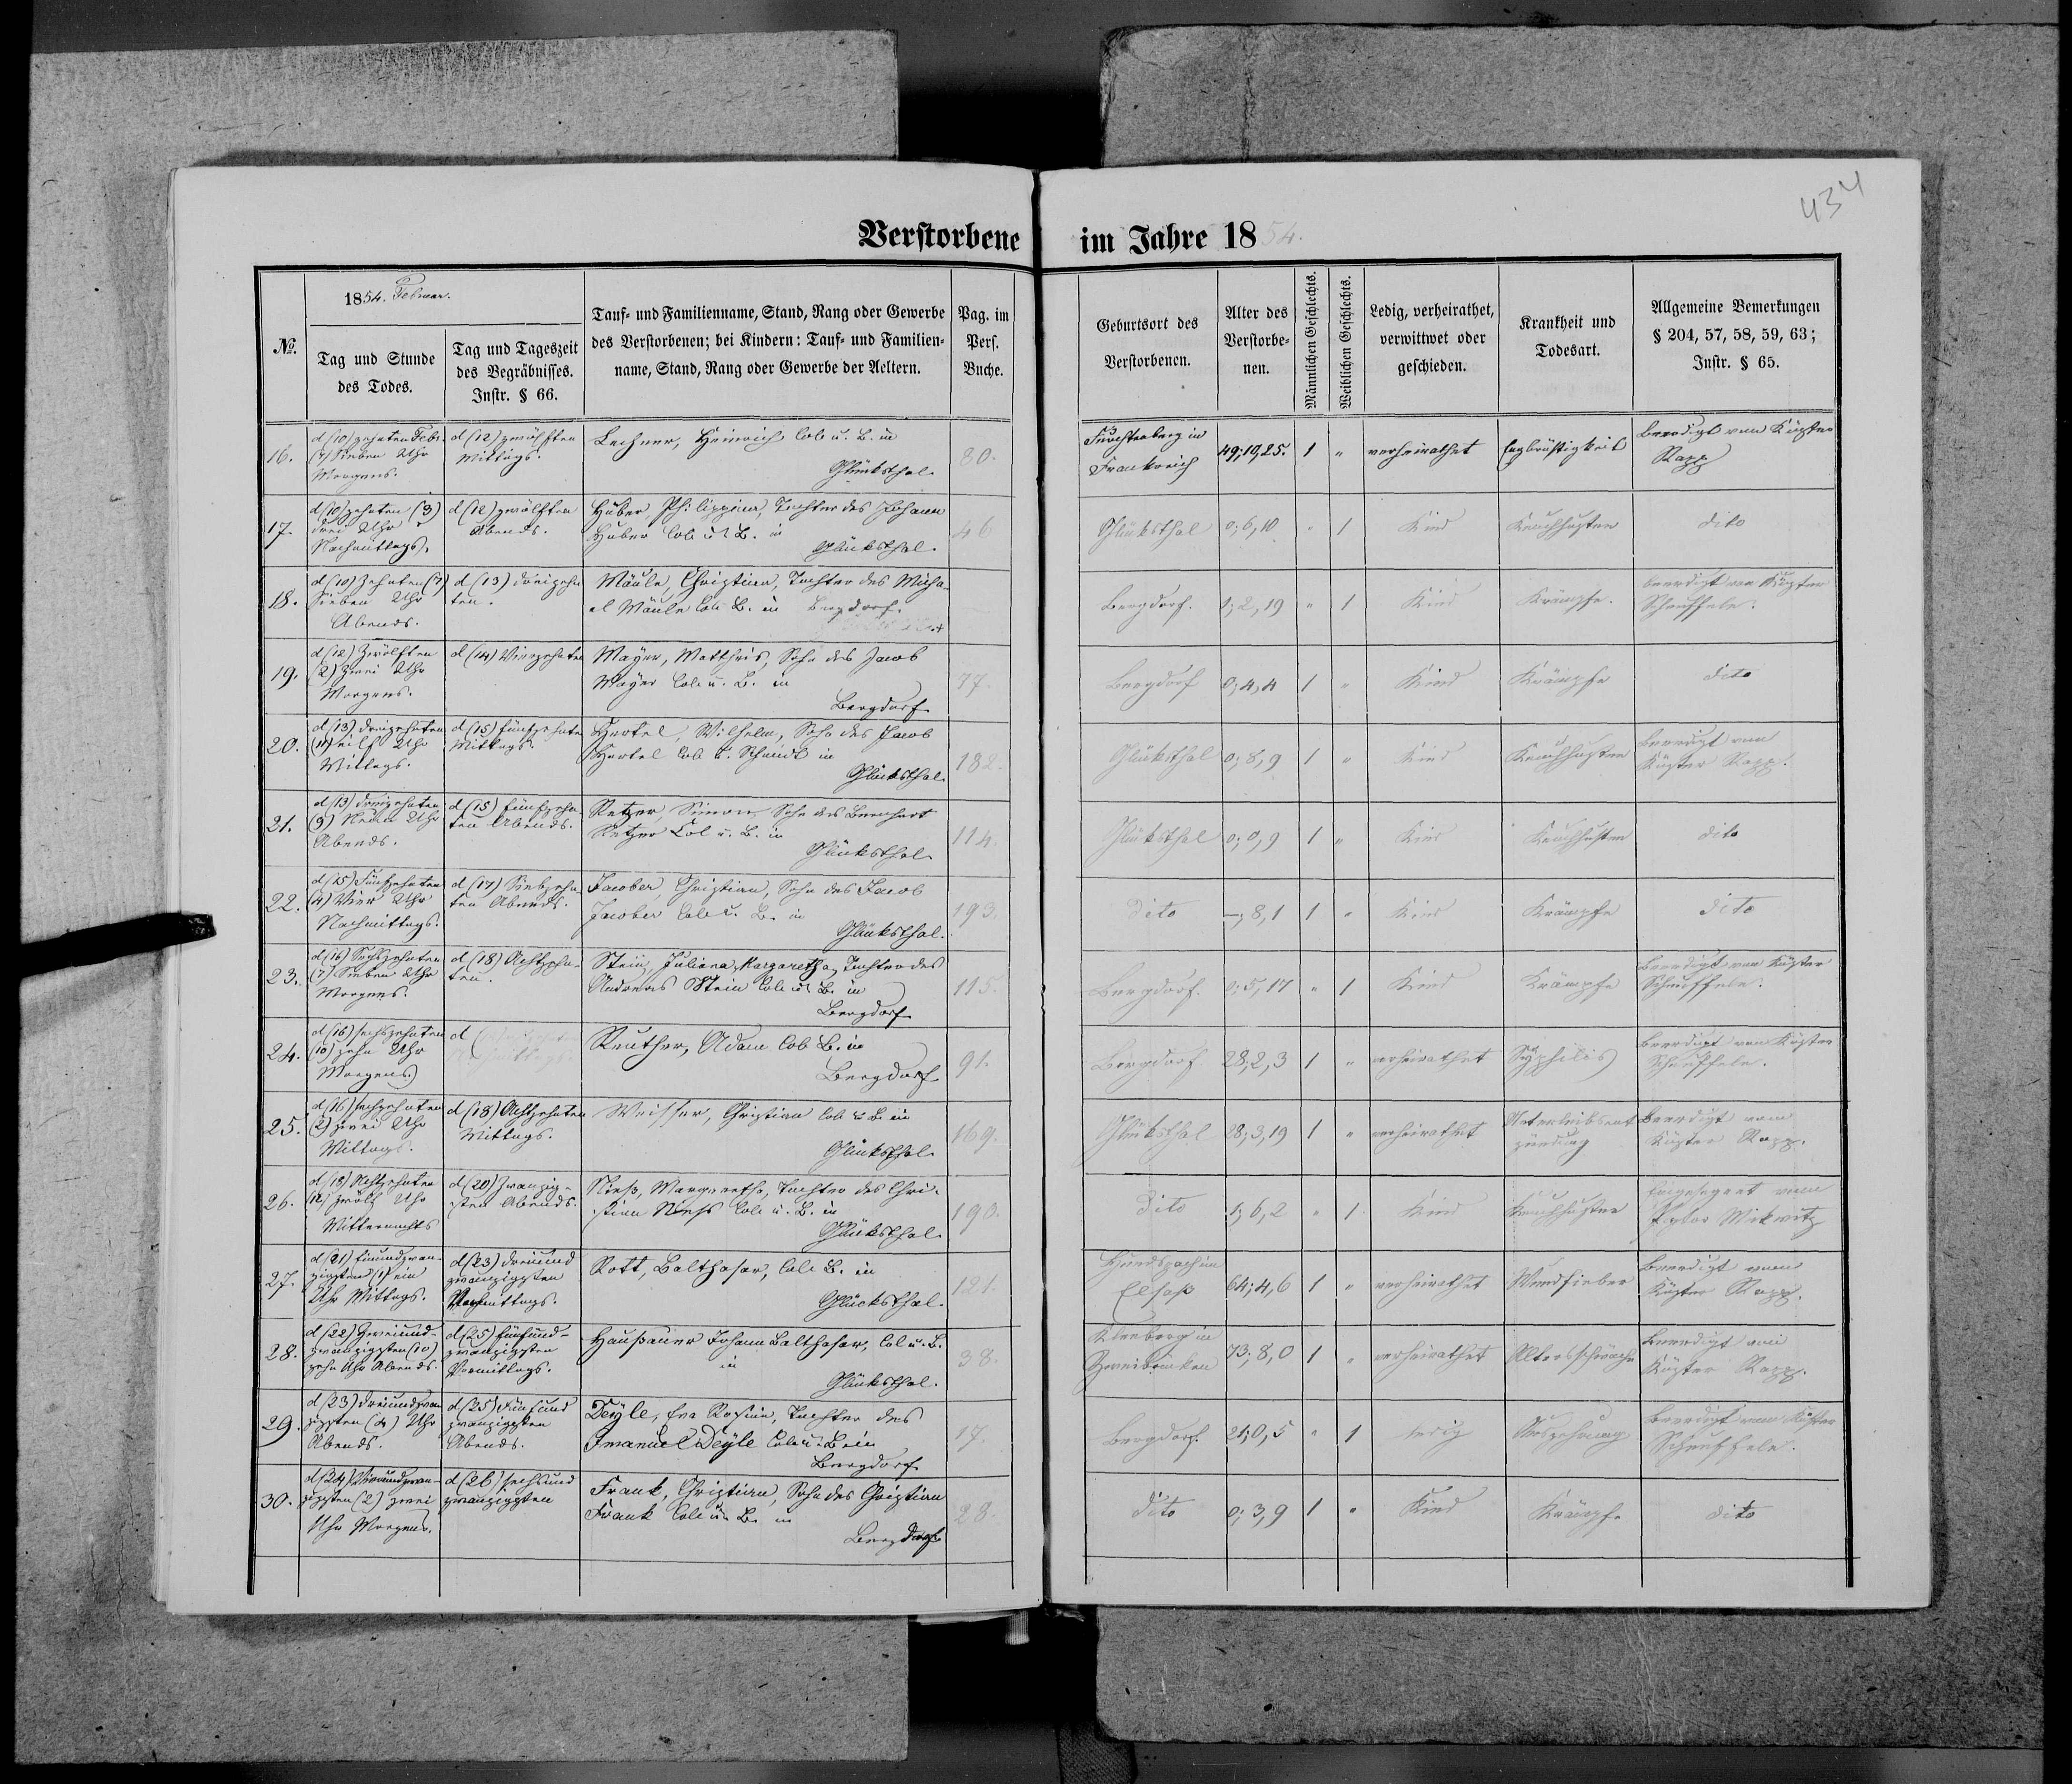 434
Verstorbene im Jahre 1854.
No.
1854. Februar.
Tag und Stunde
des Todes.
Tag und Tageszeit
des Begräbnisses.
Instr. § 66.
Tauf- und Familienname, Stand, Rang oder Gewerbe
des Verstorbenen; bei Kindern: Tauf- und Familien-
name, Stand, Rang oder Gewerbe der Aeltern.
Pag. im
Pers.
Buche.
Geburtsort des
Verstorbenen.
Alter des
Verstorbe-
nen.
Männlichen Geschlechts.
Weiblichen Geschlechts.
Ledig, verheirathet,
verwittwet oder
geschieden.
Krankheit und
Todesart.
Allgemeine Bemerkungen
§ 204, 57, 58, 59, 63;
Instr. § 65.
16.
d (10) zehnten Febr.
(7) Sieben Uhr
Morgens.
d (12) zwölften
Mittags.
Lechner, Heinrich Col. u. B. in
Glücksthal.
80.
in
Frankreich
49; 10, 25.
1
"
verheirathet
Engbrüstigkeit
Beerdigt vom Küster
Rapp
17.
d (10) zehnten (3)
drei Uhr
Nachmittags.
d (12) zwölften
Abends.
Huber, Philippina, Tochter des Johann
Huber Col. u. B. in
Glücksthal.
46
Glücksthal
0; 6, 10
"
1
Kind
Keuchhusten
dito
18.
d (10) Zehnten (7)
Sieben Uhr
Abends.
d (13) dreizehn
ten.
Mäule, Christina, Tochter des Micha-
el Mäule Col. B. in Bergdorf.
Bergdorf.
1; 2, 19
"
1
Kind
Krämpfe.
beerdigt von Küster
Scheuffele.
19.
d (12) Zwölften
(2) Zwei Uhr
Morgens.
d (14) Vierzehnten
Mayer, Mattheis, Sohn des Jacob
Mayer Col. u. B. in
Bergdorf
77.
Bergdorf
0; 4, 4
1
"
Kind
Krämpfe
dito
20.
d (13) dreizehnten
(11) eilf Uhr
Mittags.
d (15) fünfzehnten
Mittags.
Hertel, Wilhelm, Sohn des Jacob
Hertel Col. u. Schmidt in
Glücksthal.
182.
Glücksthal
0; 8, 9
1
"
Kind
Keuchhusten
Beerdigt vom
Küster Rapp.
21.
d (13) dreizehnten
(9) Neun Uhr
Abends.
d (15) fünfzehn-
ten Abends.
Retzer, Simon, Sohn des Bernhart
Retzer Col u. B. in
Glücksthal
114.
Glücksthal
0; 0, 9
1
"
Kind
Keuchhusten
dito
22.
d (15) Fünfzehnten
(4) Vier Uhr
Nachmittags.
d (17) Siebzehn
ten Abends.
Jacober, Christian, Sohn des Jacob
Jacober Col. u. B. in
Glücksthal.
193.
dito
—; 8, 1
1
"
Kind
Krämpfe
dito
23.
d (16) Sechszehnten
(7) Sieben Uhr
Morgens.
d (18) Achtzehn-
ten.
Stein, Juliana, Margaretha, Tochter des
Andreas Stein Col. u. B. in
Bergdorf
115.
Bergdorf.
0; 5, 17
"
1
Kind
Krämpfe
Beerdigt vom Küster
Scheuffele.
24.
d (16) sechszehnten
(10) zehn Uhr
Morgens)
d
Reuther, Adam Col B. in
Bergdorf
91.
Bergdorf
28; 2, 3
1
"
verheirathet
Syphilis)
Beerdigt vom Küster
Scheuffele.
25.
d (16) sechzehnten
(2) zwei Uhr
Mittags.
d (18) Achtzehnten
Mittags.
Weisser, Christian Col. u. B. in
Glücksthal.
169.
Glücksthal
28; 3, 19
1
"
verheirathet
Unterleibsent
zündung
Beerdigt vom
Küster Rapp.
26.
d (18) Achtzehnten
(12) zwölf Uhr
Mitternachts
d (20) Zwanzig-
sten Abends.
Nieß, Margaretha, Tochter des Chri-
stian Nieß Col. u. B. in
Glücksthal.
190.
dito
1; 6, 2
"
1
Kind
Keuchhusten
Eingesegnet vom
Pastor
27.
d (21) Einundzwan-
zigsten (1) ein
Uhr Mittags.
d (23) dreiund
zwanzigsten
Nachmittags.
Rott, Balthasar, Col. B. in
Glücksthal.
121.
Hundspach im
Elsaß
64; 4, 6
1
"
verheirathet
Beerdigt vom
Küster Rapp.
28.
d (22) Zweiund-
zwanzigsten (10)
zehn Uhr Abends.
d (25) fünfund-
zwanzigsten
Vormittags.
Haußauer Johann Balthasar, Col u. B.
in
Glücksthal.
38.
Kleeburg in
Zweibrücken
73; 8, 0
1
"
verheirathet
Altersschwäche
Beerdigt vom
Küster Rapp.
29.
d (23) dreiundzwan
zigsten (4) Uhr
Abends.
d (25) Fünfund
zwanzigsten
Abends.
Deyle, Eva Rosina, Tochter des
Imanuel Deyle Col. u. B. in
Bergdorf
17.
Bergdorf.
21; 0, 5
"
1
ledig
Auszehrung
Beerdigt vom Küster
Scheuffele.
30.
d (24) Vierundzwan-
zigsten (2) zwei
Uhr Morgens.
d (26) sechsund
zwanzigsten
Frank, Christian, Sohn des Christian
Frank Col. u. B. in
Bergdorf
28.
dito
0; 3, 9
1
"
Kind
Krämpfe
dito